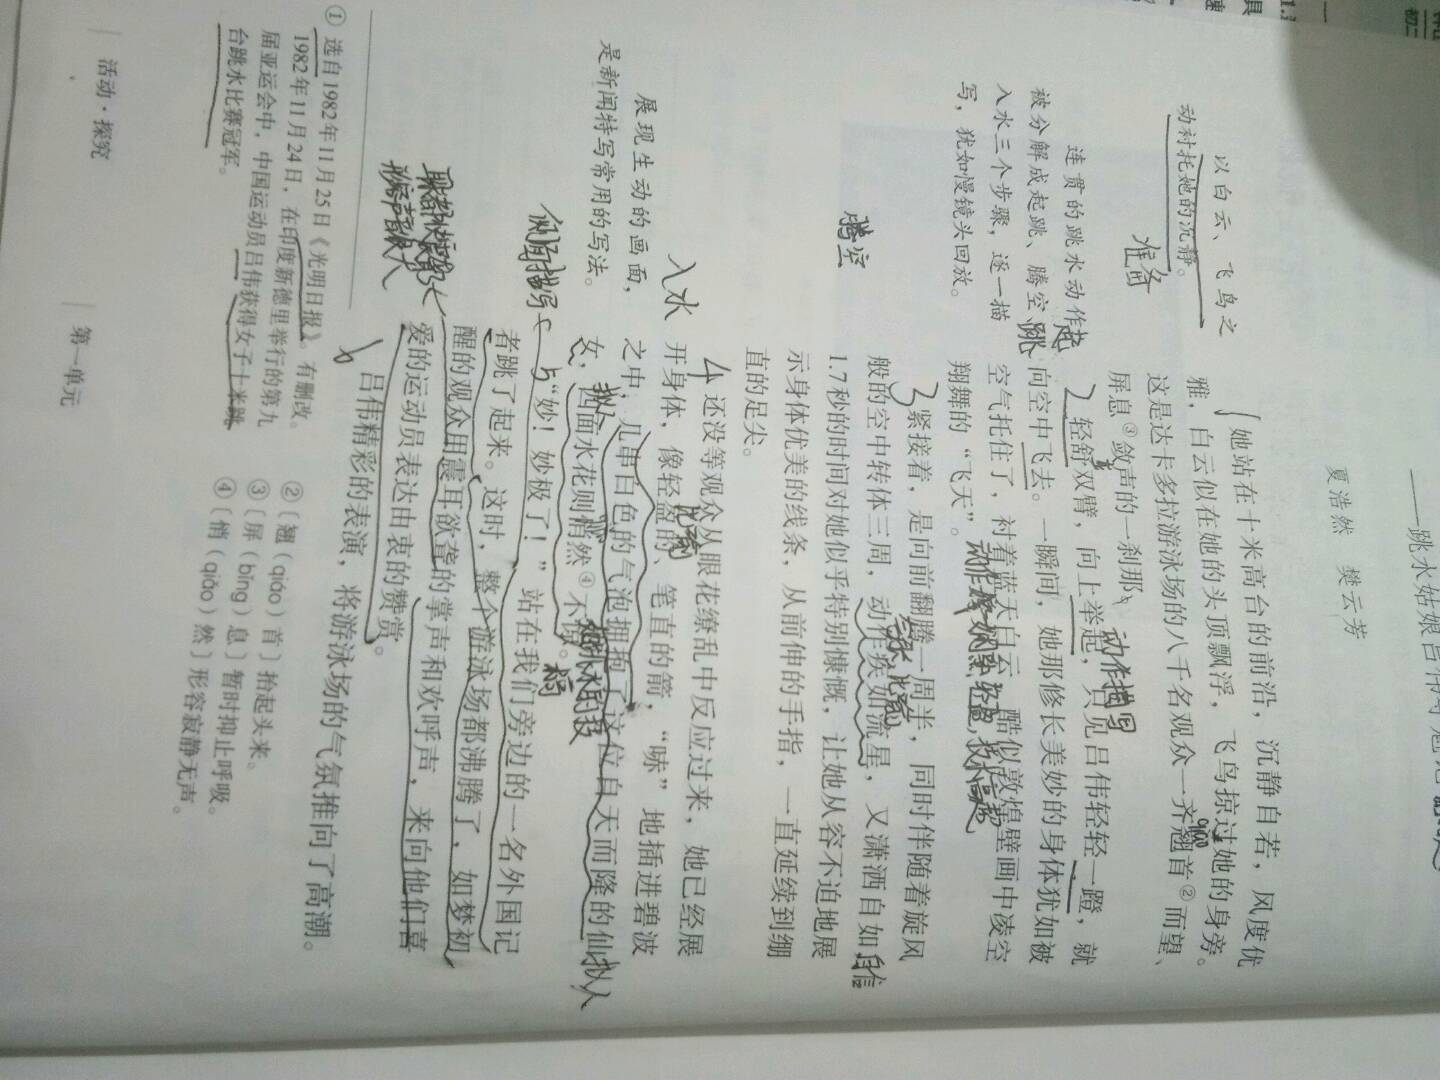 夏浩然 樊云芳
她站在十米高台的前沿，沉静自若，风度优
雅，白云似在她的头顶飘浮，飞鸟掠过她的身旁。
这是达卡多拉游泳场的八千名观众一齐翘首②而望、
qiáo
屏息③敛声的一刹那。
动作描写
2轻舒双臂，向上举起，只见吕伟轻轻一蹬，就
向空中飞去。一瞬间，她那修长美妙的身体犹如被
空气托住了，衬着蓝天白云，酷似敦煌壁画中凌空
翔舞的“飞天”。
3紧接着，是向前翻腾一周半，同时伴随着旋风
般的空中转体三周，动作疾如流星，又潇洒自如，
自信
1.7秒的时间对她似乎特别慷慨，让她从容不迫地展
示身体优美的线条，从前伸的手指，一直延续到绷
直的足尖。
4还没等观众从眼花缭乱中反应过来，她已经展
开身体，像轻盈的、笔直的箭，“哧”地插进碧波
比喻
之中，几串白色的气泡拥抱了这位自天而降的仙
拟人
女，四面水花则悄然④不惊。
5“妙！妙极了！”站在我们旁边的一名外国记
者跳了起来。这时，整个游泳场都沸腾了，如梦初
醒的观众用震耳欲聋的掌声和欢呼声，来向他们喜
爱的运动员表达由衷的赞赏。
6吕伟精彩的表演，将游泳场的气氛推向了高潮。
以白云、飞鸟之
动衬托她的沉静。
准备
连贯的跳水动作
被分解成起跳、腾空、
入水三个步骤，逐一描
写，犹如慢镜头回放。
起跳
腾空
入水
展现生动的画面，
是新闻特写常用的写法。
侧面描写
① 选自1982年11月25日《光明日报》。有删改。
1982年11月24日，在印度新德里举行的第九
届亚运会中，中国运动员吕伟获得女子十米跳
台跳水比赛冠军。
②〔翘（qiáo）首〕抬起头来。
③〔屏（bǐng）息〕暂时抑止呼吸。
④〔悄（qiǎo）然〕形容寂静无声。
活动·探究
第一单元